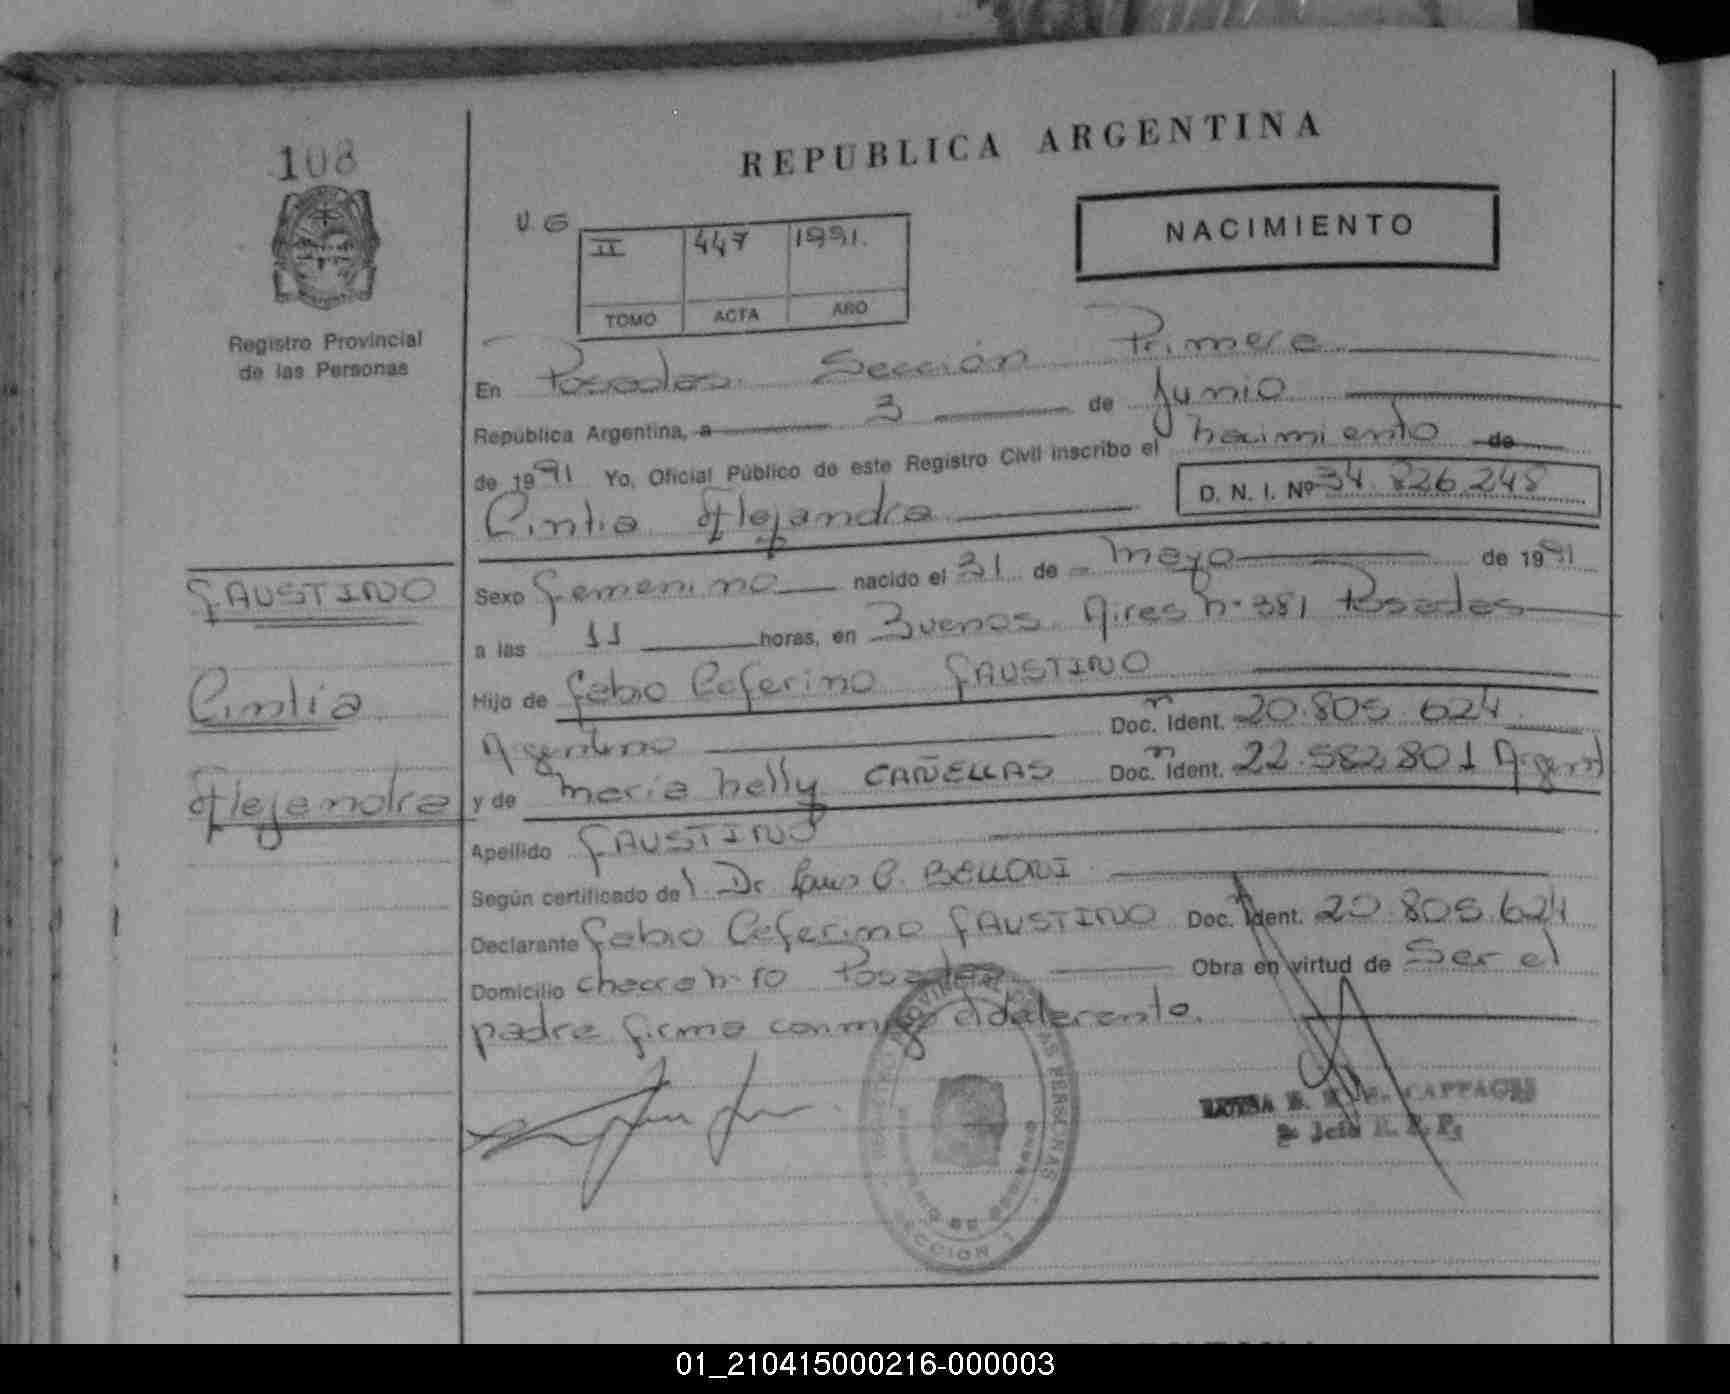 108
REPUBLICA ARGENTINA
NACIMIENTO
V. G
II 447 1991.
TOMO ACTA AÑO
Registro Provincial
de las Personas
En Posadas. Sección Primera
República Argentina, a 3 de Junio
de 1991 Yo, Oficial Público de este Registro Civil inscribo el nacimiento de
Cintia Alejandra D. N. I. Nº 34.826.248
FAUSTINO
Cintia
Alejandra
Sexo femenino nacido el 31 de mayo de 1991
a las 11 horas, en Buenos Aires n-381 Posadas
Hijo de Fabio Ceferino FAUSTINO
Argentino Doc. Ident. 20.805.624
y de Maria Nelly CAÑELLAS Doc. Ident. 22.582.801 Argent
Apellido FAUSTINO
Según certificado del Dr C. BELLONI
Declarante Fabio Ceferino FAUSTINO Doc. Ident. 20.805.624
Domicilio chacra n-10 Posadas Obra en virtud de Ser el
padre firma conmigo
PROVINCIAL DE LAS PERSONAS
SECCION 1
01_210415000216-000003